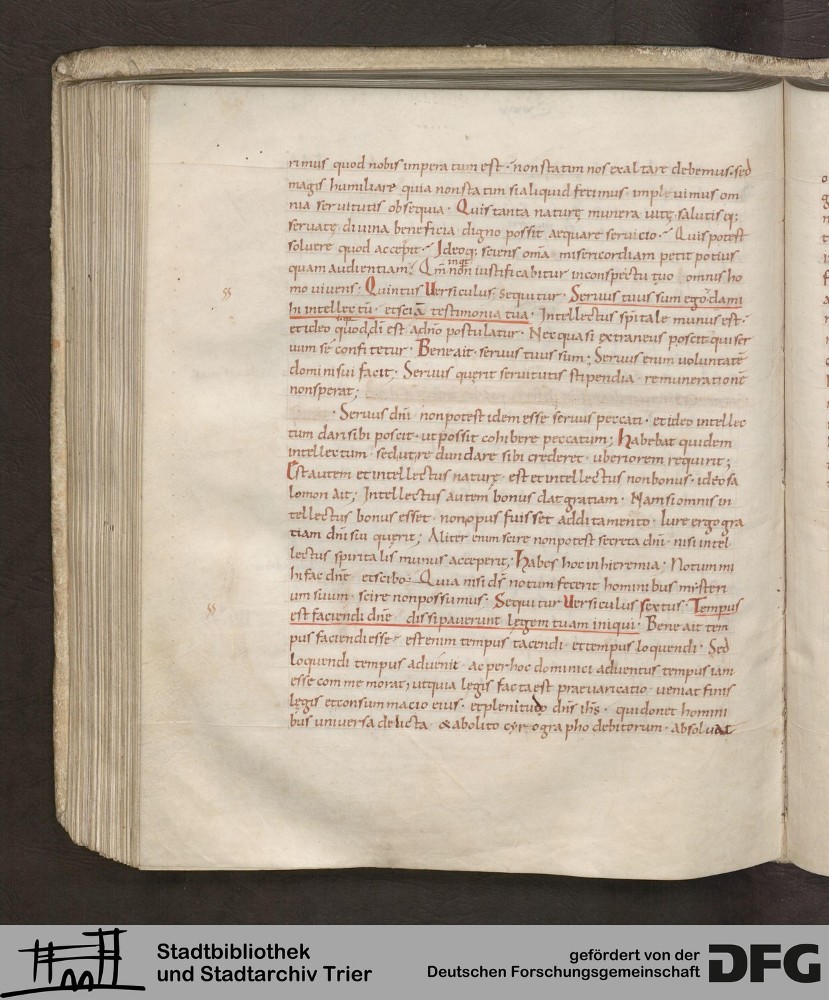 rimus quod nobis imperatum est · non statim nos exaltare debemus · sed
magis humiliare quia non statim si aliquid fecimus · implevimus om
nia servitutis obsequia · Quis tanta naturę munera vitę · salutisq;
servatę divina beneficia digno possit aequare servicio · Quis potest
solvere quod accepit · Ideoq; sciens om̄a misericordiam petit potius
quam audientiam · Qm̄ inqt non iustificabitur in conspectu tuo omnis ho
mo vivens · Quintus Versiculus sequitur · Servus tuus sum ego dami
hi intellectū · et sciā testimonia tua · Intellectus sp̄itale munus est ·
et ideo quod dī est a dn̄o postulatur · Nec quasi extraneus poscit qui ser
vum sē confitetur · Bene ait · servus tuus sum; Servus enim voluntatē
domini sui facit; Servus quęrit servitutis stipendia · remunerationē
non sperat;
· Servus dn̄i non potest idem esse servus peccati · et ideo intellec
tum dari sibi poscit · ut possit cohibere peccatum; habebat quidem
intellectum · sed
Est autem et intellectus naturę · est et intellectus non bonus · ideo sa
lomon ait; Intellectus autem bonus dat gratiam · Nam si omnis in
tellectus bonus esset · non opus fuisset additamento · Iure ergo gra
tiam dn̄i sui quęrit; Aliter enim scire non potest secreta dn̄i · nisi intel
lectus spiritalis munus acceperit; habes hoc in hieremia; Notum mi
hi fac dn̄e et scibo · Quia nisi dс̄ notum fecerit hominibus misteri
um suum · scire non possumus · Sequitur Versiculus sextus · Tempus
est faciendi dn̄e dissipaverunt legem tuam iniqui · Bene ait tem
pus faciendi esse · est enim tempus tacendi · et tempus loquendi · Sed
loquendi tempus advenit · ac per hoc dominici adventus tempus iam
esse commemorat; ut quia legis facta est praevaricatio · veniat finis
legis et consummacio eius · et plenitudo dn̄s ih̄s · qui donet homini
bus universa delicta · & abolito cyrographo debitorum · absolvat
§§
§§
Stadtbibliothek
und Stadtarchiv Trier
gefördert von der
Deutschen Forschungsgemeinschaft
DFG